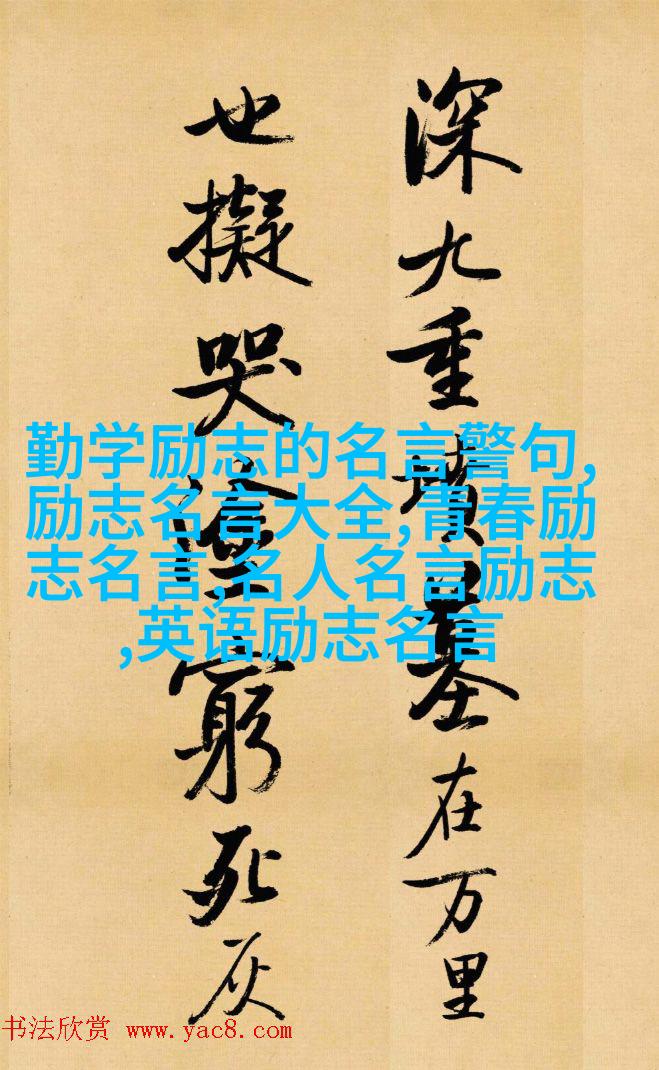 深九重墳墓在万里
也擬哭塗窮死灰
勤学励志的名言警句,
励志名言大全,青春励
志名言,名人名言励志
,英语励志名言
书法欣赏 www.yac8.com